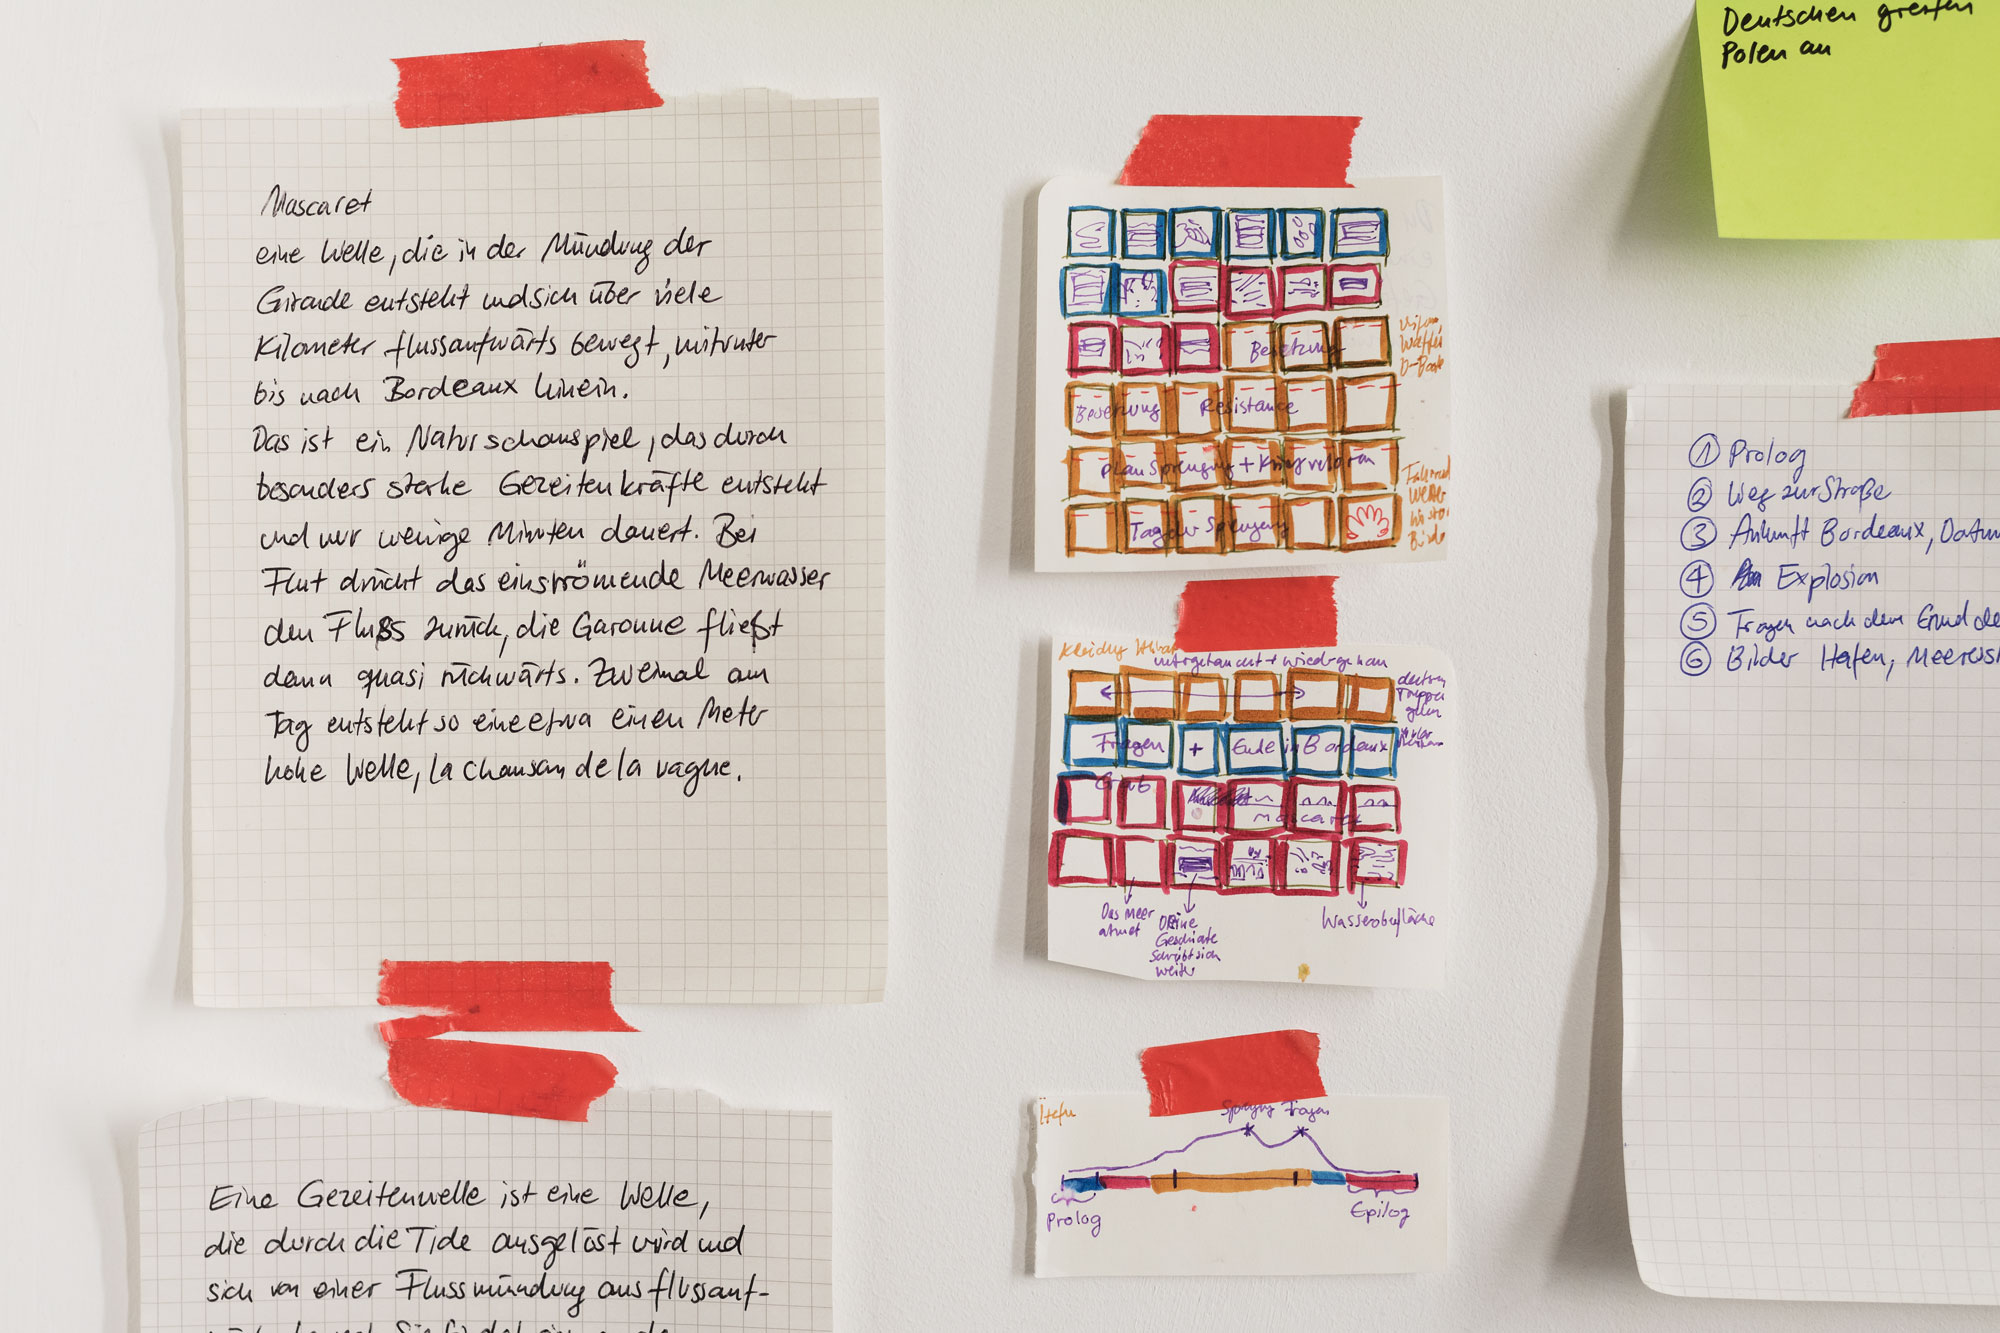 Mascaret
eine Welle, die in der Mündung der
Gironde entsteht und sich über viele
Kilometer flussaufwärts bewegt, mitunter
bis nach Bordeaux hinein.
Das ist ein Naturschauspiel, das durch
besonders starke Gezeitenkräfte entsteht
und nur wenige Minuten dauert. Bei
Flut drückt das einströmende Meerwasser
den Fluss zurück, die Garonne fließt
dann quasi rückwärts. Zweimal am
Tag entsteht so eine etwa einen Meter
hohe Welle, la chanson de la vague.
Eine Gezeitenwelle ist eine Welle,
die durch die Tide ausgelöst wird und
sich von einer Flussmündung aus flussauf-
Besetzung
Besetzung Resistance
Plan Sprengung +
Tag der Sprengung
Kleidung
deutsche
Truppen
gehen
Fragen + Ende in Bordeaux
Grab
Mascaret
Das Meer
atmet
Geschichte
schreibt sich
weiter
Wasseroberfläche
Sprengung Fragen
Prolog
Epilog
Deutschen greifen
Polen an
① Prolog
② Weg zur Straße
③ Ankunft Bordeaux,
④ Explosion
⑤ Fragen nach dem Grund
⑥ Bilder Hafen,